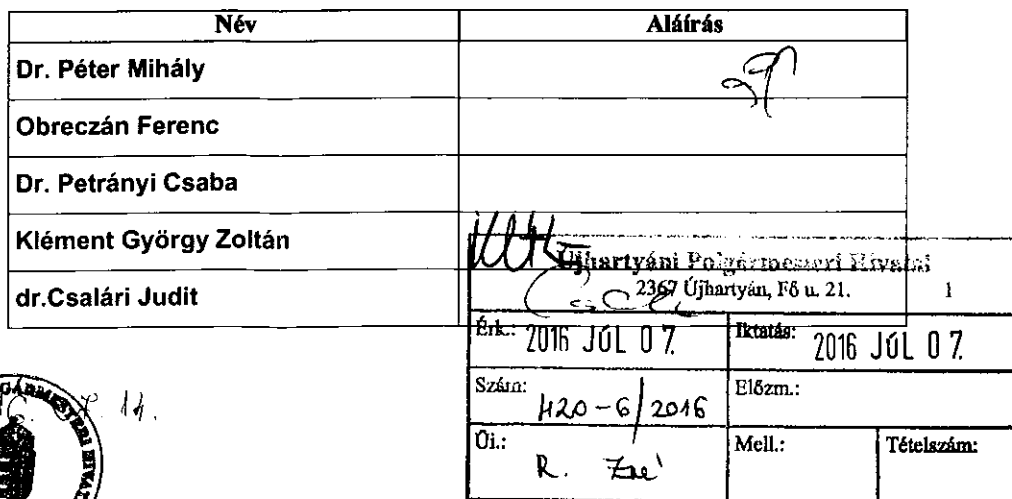 Név Aláírás
Dr. Péter Mihály
Obreczán Ferenc
Dr. Petrányi Csaba
Klément György Zoltán
dr.Csalári Judit
Újhartyáni Polgármesteri Hivatal
2367 Újhartyán, Fő u. 21. 1
Érk.: 2016 JÚL 07. Iktatás: 2016 JÚL 07.
Szám: 420-6/2016 Előzm.:
Üi.: R. Mell.: Tételszám: